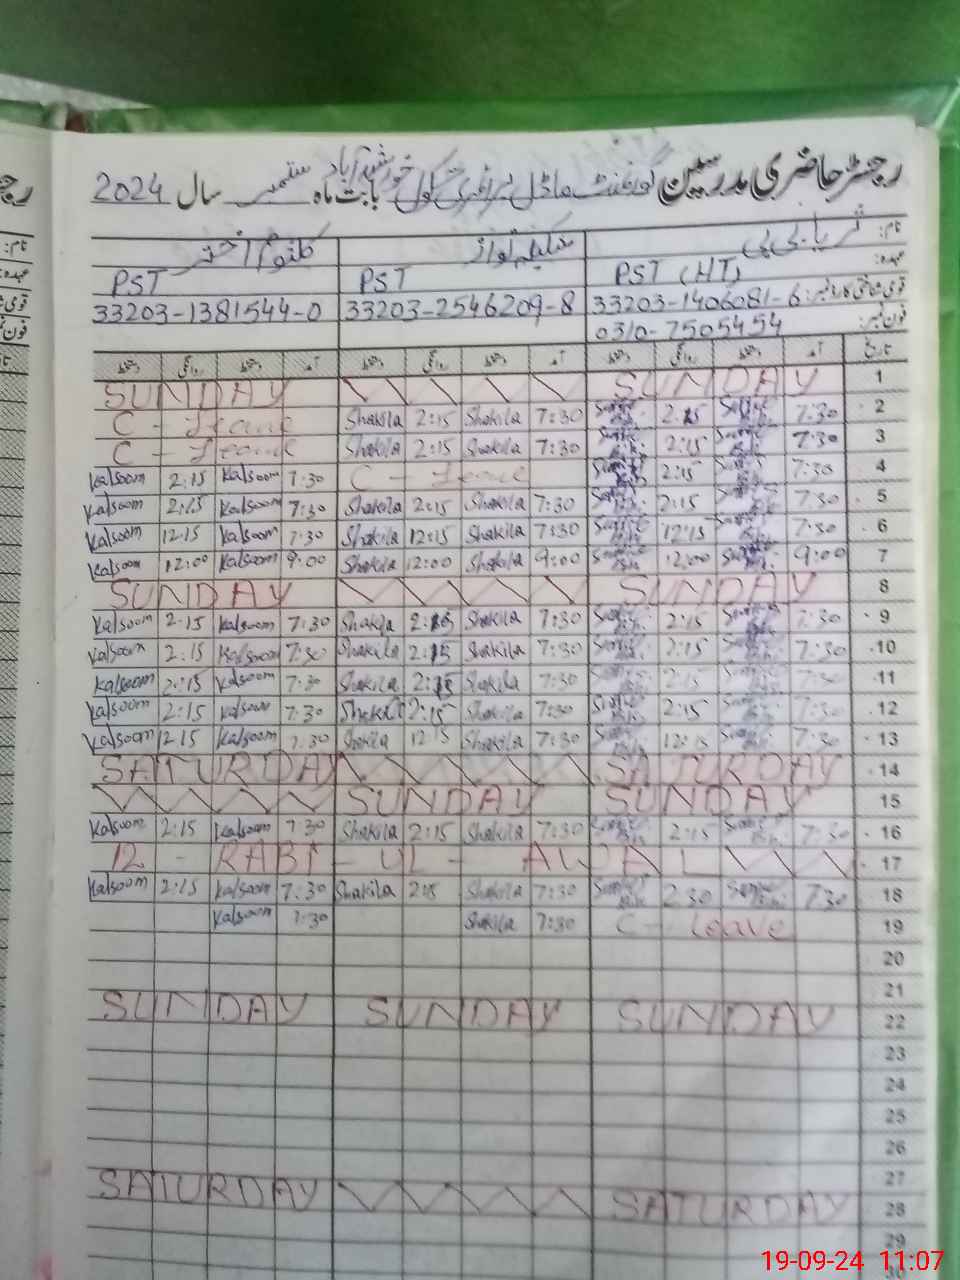 رجسٹر حاضری مدرسین گورنمنٹ ماڈل پرائمری سکول خورشید آباد بابت ماہ ستمبر سال 2024
نام: ثریا بی بی شکیلہ نواز کلثوم اختر
عہدہ: PST (HT) PST PST
قومی شناختی کارڈ نمبر: 33203-1406081-6 33203-2546209-8 33203-1381544-0
فون نمبر: 0310-7505454
تاریخ آمد دستخط روانگی دستخط آمد دستخط روانگی دستخط آمد دستخط روانگی دستخط
SUNDAY SUNDAY 1
C - Leave Shakila 2:15 Shakila 7:30 2:15 7:30 2
C - Leave Shakila 2:15 Shakila 7:30 2:15 7:30 3
Kalsoom 2:15 Kalsoom 7:30 C - Leave 2:15 7:30 4
Kalsoom 2:15 Kalsoom 7:30 Shakila 2:15 Shakila 7:30 2:15 7:30 5
Kalsoom 12:15 Kalsoom 7:30 Shakila 12:15 Shakila 7:30 12:15 7:30 6
Kalsoom 12:00 Kalsoom 9:00 Shakila 12:00 Shakila 9:00 12:00 9:00 7
SUNDAY SUNDAY 8
Kalsoom 2:15 Kalsoom 7:30 Shakila 2:15 Shakila 7:30 2:15 7:30 9
Kalsoom 2:15 Kalsoom 7:30 Shakila 2:15 Shakila 7:30 2:15 7:30 10
Kalsoom 2:15 Kalsoom 7:30 Shakila 2:15 Shakila 7:30 2:15 7:30 11
Kalsoom 2:15 Kalsoom 7:30 Shakila 2:15 Shakila 7:30 2:15 7:30 12
Kalsoom 12:15 Kalsoom 7:30 Shakila 12:15 Shakila 7:30 12:15 7:30 13
SATURDAY SATURDAY 14
SUNDAY SUNDAY 15
Kalsoom 2:15 Kalsoom 7:30 Shakila 2:15 Shakila 7:30 2:15 7:30 16
12 - RABI - UL - AWAL 17
Kalsoom 2:15 Kalsoom 7:30 Shakila 2:15 Shakila 7:30 2:30 7:30 18
Kalsoom 7:30 Shakila 7:30 C - Leave 19
20
21
SUNDAY SUNDAY SUNDAY 22
23
24
25
26
27
SATURDAY SATURDAY 28
29
30
19-09-24 11:07